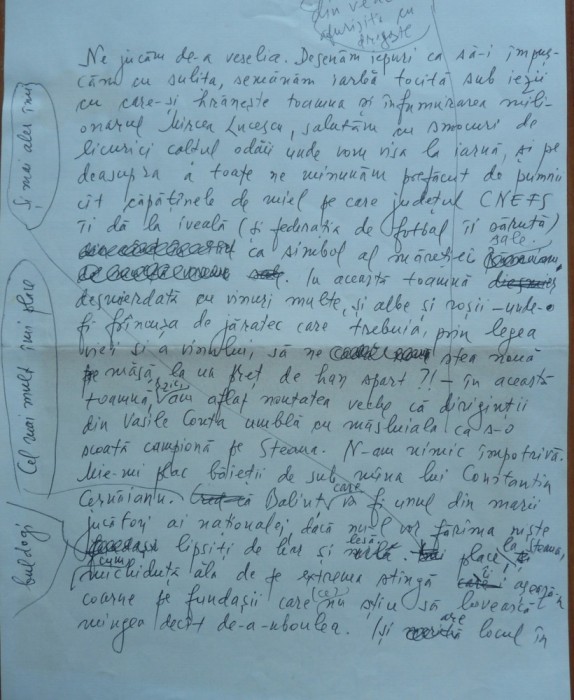 din ve
afurisită cu
dragoste
Ne jucăm de-a veselia. Desenăm iepuri ca să-i împuș-
căm cu sulița, semănăm iarbă tocită sub iezii
cu care-și hrănește toamna și înfumurarea mili-
onarul Mircea Lucescu, salutăm cu smocuri de
licurici caldul odăii unde vom visa la iarnă, și pe
deasupra a toate ne minunăm prefăcut de pumnii
cît căpățînele de miel pe care județul CNEFS
îi dă la iveală (și federația de fotbal îi sărută)
ca simbol al măreției sale.
In această toamnă
desmierdată cu vinuri multe, și albe și roșii – unde-o
fi frînghia de jăratec care trebuia, prin legea
vieri și a vinului, să ne stea nouă
pe masă, la un preț de han spart ?! – în această
toamnă, zic, am aflat noutatea veche că diriginții
din Vasile Conta umblă cu măsluiala ca s-o
scoată campionă pe Steaua. N-am nimic împotrivă.
Mie-mi plac băieții de sub mîna lui Constantin
Cernăianu. Balint, care va fi unul din marii
jucători ai naționalei, dacă nu-l vor fărîma niște
lipsiți de har și lesă. place, la Steaua,
cum michiduță ăla de pe extrema stîngă îi așează-n
coarne pe fundașii care (ce) nu știu să lovească
mingea decît de-a-mboulea. Iși are locul în
Și mai ales îmi
Cel mai mult îmi place
buldogi